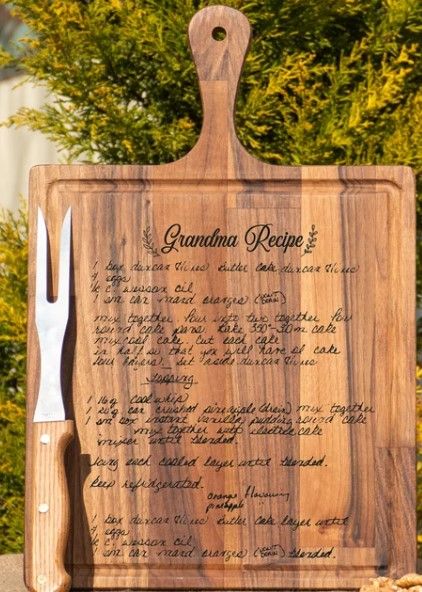 Grandma Recipe
1 box duncan Hines butter cake duncan Hines
4 eggs
½ c. wesson oil
1 sm can mand oranges (DON'T DRAIN)
mix together. Pour into two together Pour
round cake pans. bake 350°-30m cake
mix cool cake. cut each cake
in half so that you will have sl cake
four layers). Set aside duncan Hines
Topping
1 16 oz cool whip
1 lg can crushed pineapple (drain) mix together
1 sm box instant vanilla pudding round cake
mix together with electric cake
mixer until blended.
Icing each cooled layer until blended.
Keep refridgerated.
orange flavouring
pineapple
1 box duncan Hines butter cake layer until
4 eggs
½ c. wesson oil
1 sm can mand oranges (DON'T DRAIN) blended.